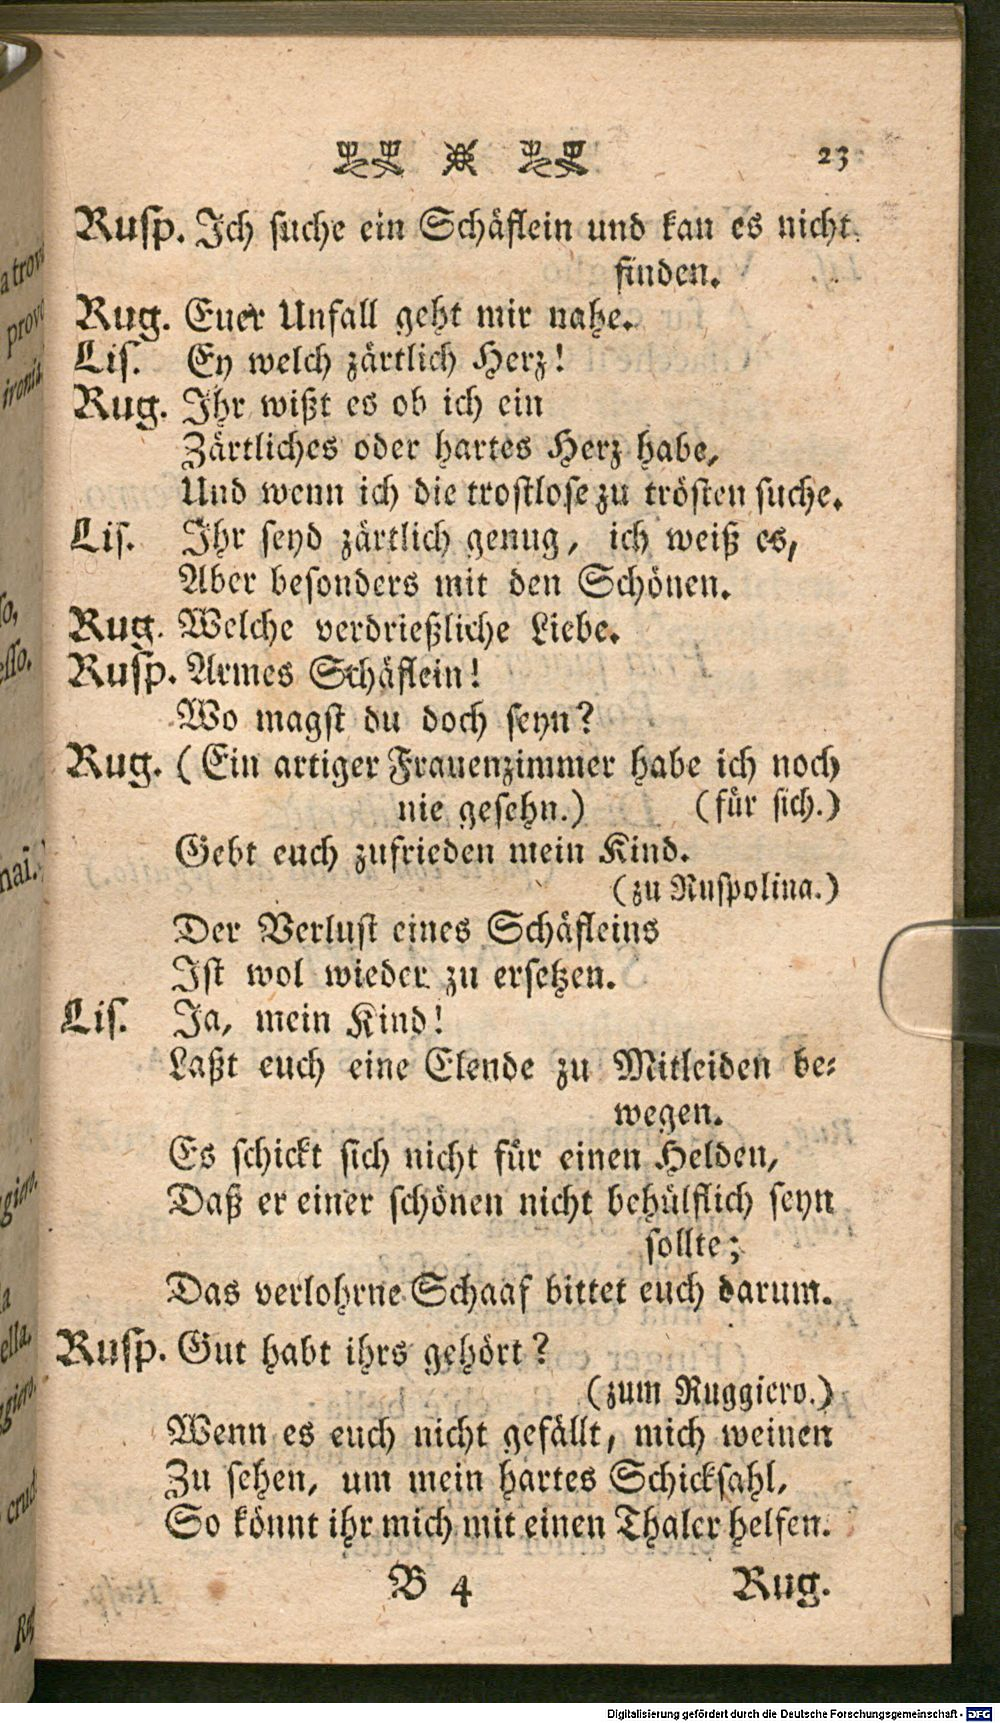 23
Rusp. Ich suche ein Schäflein und kan es nicht
finden.
Rug. Euer Unfall geht mir nahe.
Lis. Ey welch zärtlich Herz!
Rug. Ihr wißt es ob ich ein
Zärtliches oder hartes Herz habe,
Und wenn ich die trostlose zu trösten suche.
Lis. Ihr seyd zärtlich genug, ich weiß es,
Aber besonders mit den Schönen.
Rug. Welche verdrießliche Liebe.
Rusp. Armes Schäflein!
Wo magst du doch seyn?
Rug. (Ein artiger Frauenzimmer habe ich noch
nie gesehn.) (für sich.)
Gebt euch zufrieden mein Kind.
(zu Ruspolina.)
Der Verlust eines Schäfleins
Ist wol wieder zu ersetzen.
Lis. Ja, mein Kind!
Laßt euch eine Elende zu Mitleiden be-
wegen.
Es schickt sich nicht für einen Helden,
Daß er einer schönen nicht behülflich seyn
sollte;
Das verlohrne Schaaf bittet euch darum.
Rusp. Gut habt ihrs gehört?
(zum Ruggiero.)
Wenn es euch nicht gefällt, mich weinen
Zu sehen, um mein hartes Schicksahl,
So könnt ihr mich mit einen Thaler helfen.
B 4 Rug.
Digitalisierung gefördert durch die Deutsche Forschungsgemeinschaft - DFG